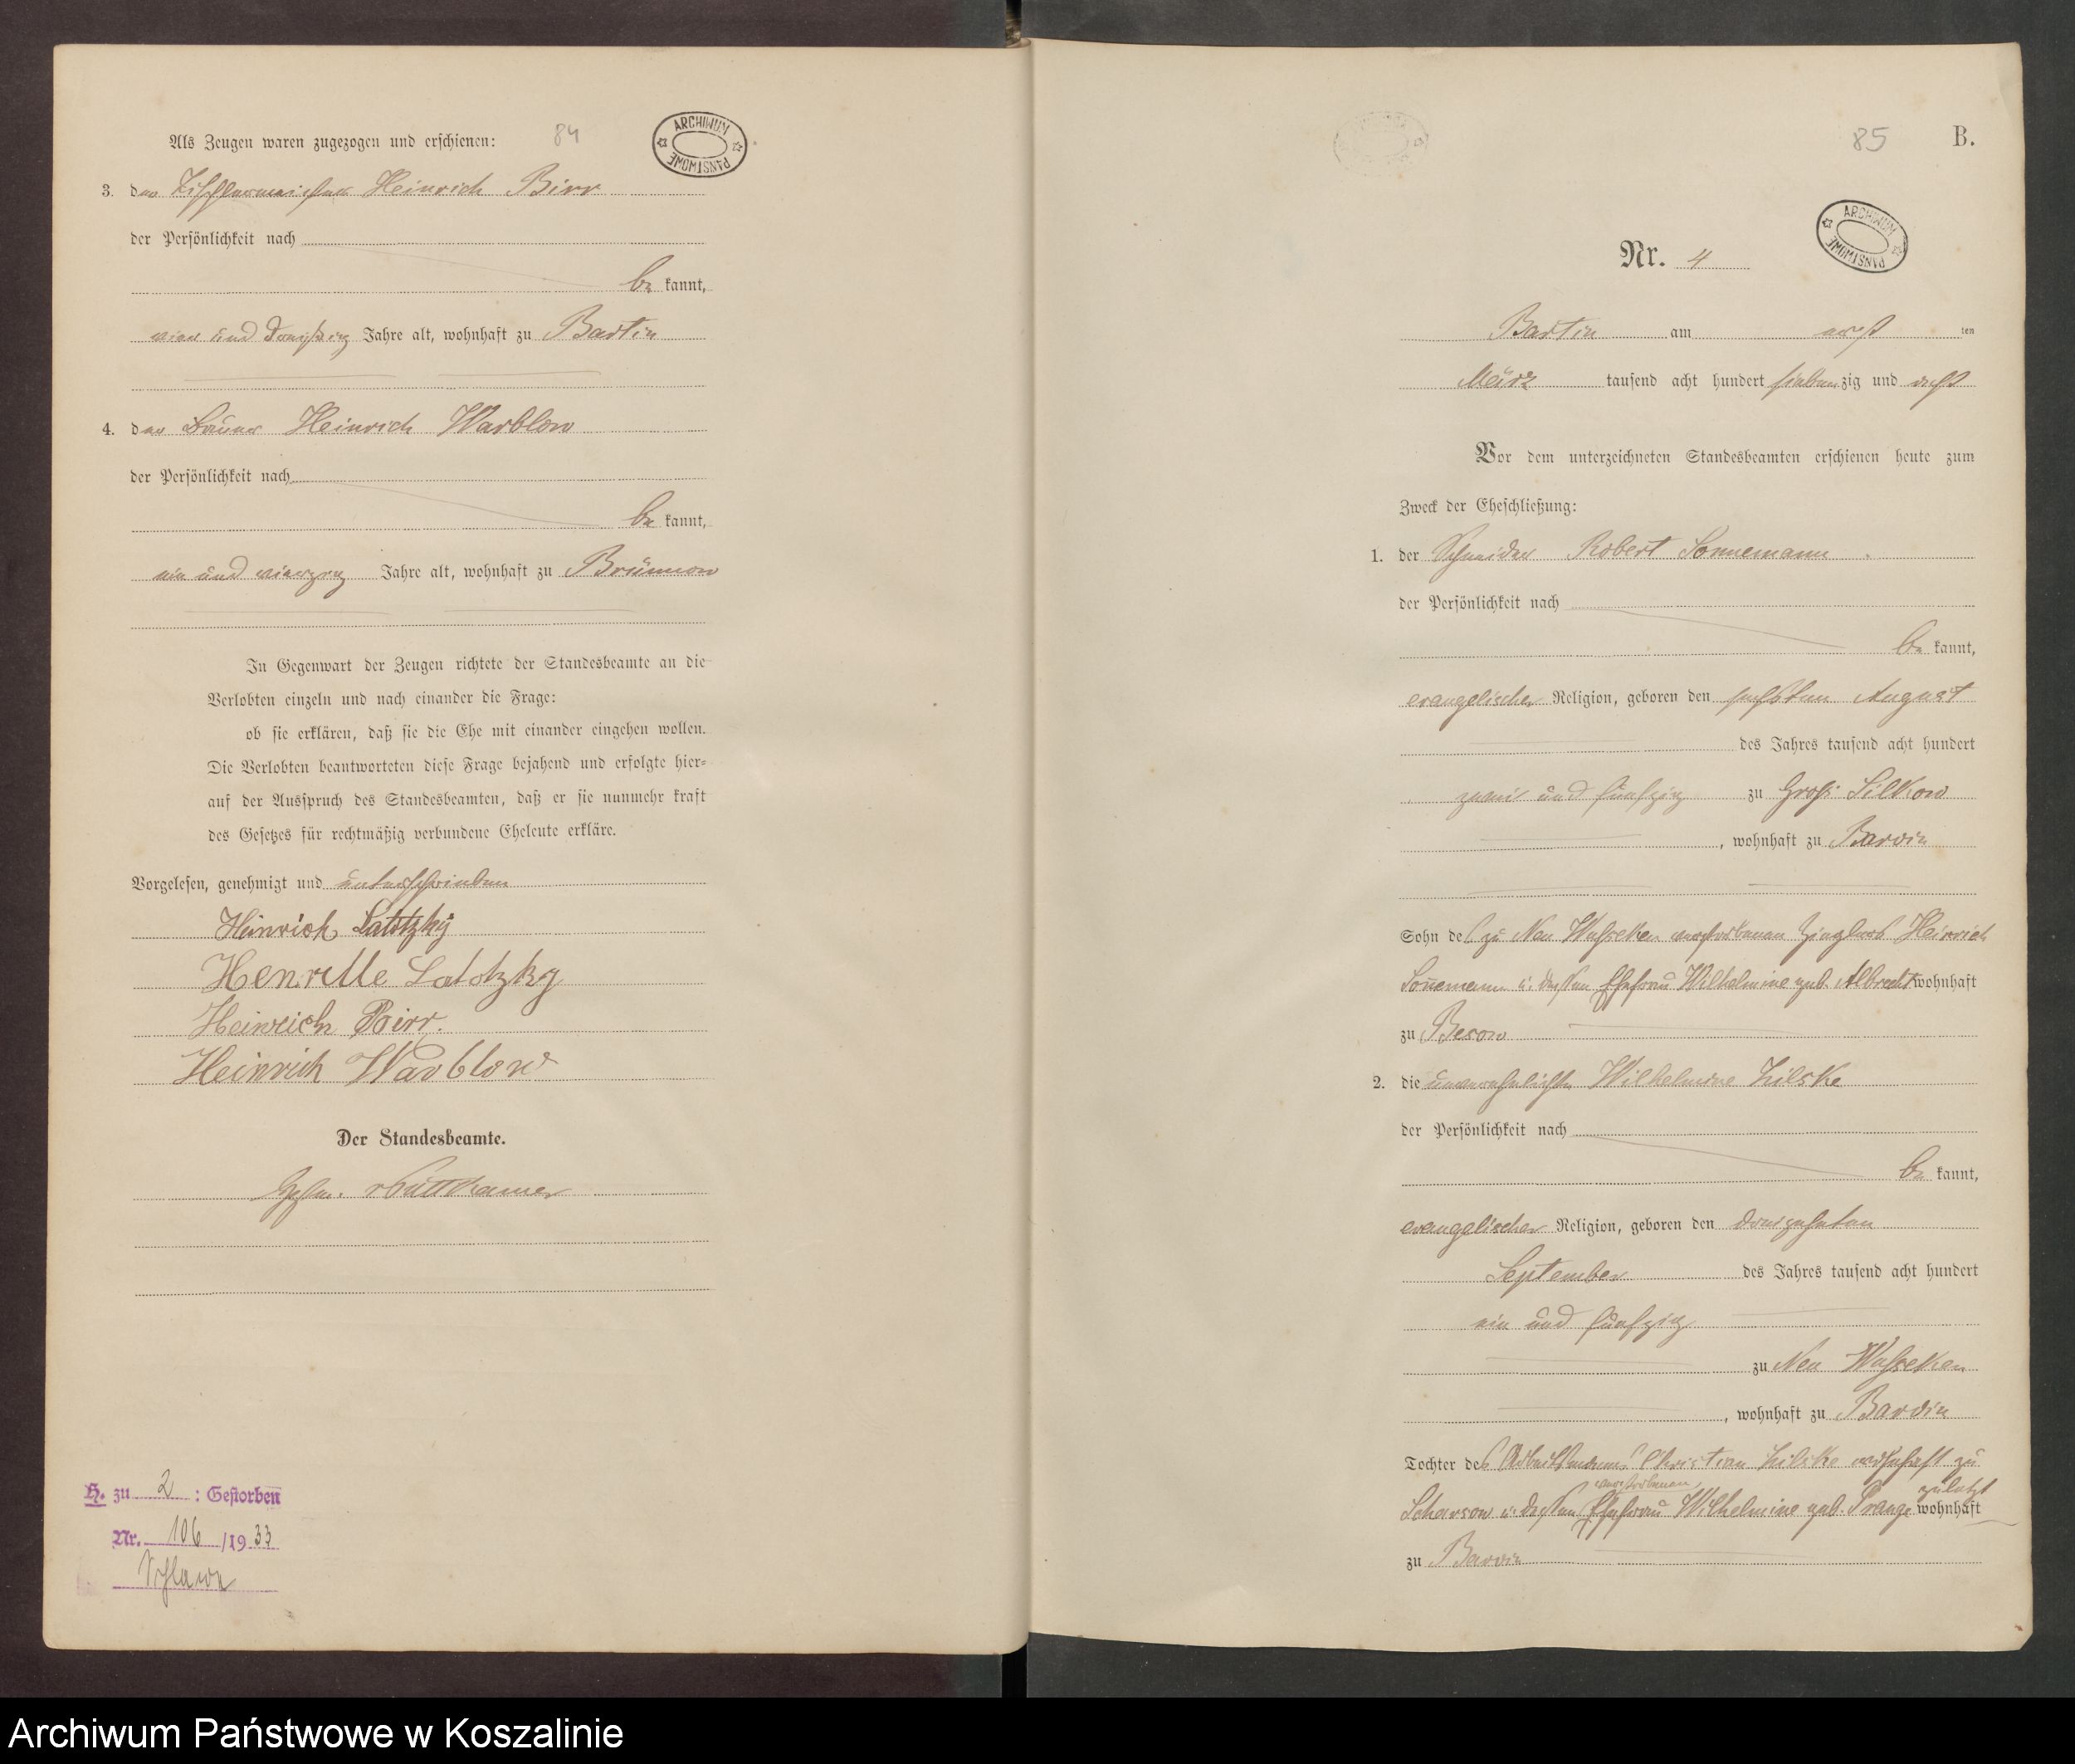 Als Zeugen waren zugezogen und erschienen:
84
ARCHIWUM PAŃSTWOWE
3. der Tischlermeister Heinrich Birr
der Persönlichkeit nach
be kannt,
vier und dreißig Jahre alt, wohnhaft zu Bartin
4. der Bauer Heinrich Warblow
der Persönlichkeit nach
be kannt,
ein und vierzig Jahre alt, wohnhaft zu Brünnow
In Gegenwart der Zeugen richtete der Standesbeamte an die
Verlobten einzeln und nach einander die Frage:
ob sie erklären, daß sie die Ehe mit einander eingehen wollen.
Die Verlobten beantworteten diese Frage bejahend und erfolgte hier-
auf der Ausspruch des Standesbeamten, daß er sie nunmehr kraft
des Gesetzes für rechtmäßig verbundene Eheleute erkläre.
Vorgelesen, genehmigt und unterschrieben
Heinrich Latotzky
Henriette Latotzky
Heinrich Birr.
Heinrich Warblow
Der Standesbeamte.
Puttkamer
H. zu 2 : Gestorben
Nr. 106 /19 33
Schlawe
85 B.
ARCHIWUM PAŃSTWOWE
Nr. 4
Bartin am erst ten
März tausend acht hundert siebenzig und acht
Vor dem unterzeichneten Standesbeamten erschienen heute zum
Zweck der Eheschließung:
1. der Schneider Robert Sonnemann
der Persönlichkeit nach
be kannt,
evangelischer Religion, geboren den sechsten August
des Jahres tausend acht hundert
zwei und fünfzig zu Groß Silkow
, wohnhaft zu Barvin
Sohn des zu Neu Wusseken verstorbenen Zieglers Heinrich
Sonnemann u. dessen Ehefrau Wilhelmine geb. Albrecht wohnhaft
zu Besow
2. die unverehelichte Wilhelmine Zilske
der Persönlichkeit nach
be kannt,
evangelischer Religion, geboren den dreizehnten
September des Jahres tausend acht hundert
ein und fünfzig
zu Neu Wusseken
, wohnhaft zu Barvin
Tochter des Arbeitsmanns Christian Zilske wohnhaft zu
verstorbenen zuletzt
Scharsow u. dessen Ehefrau Wilhelmine geb. Prange wohnhaft
zu Barvin
Archiwum Państwowe w Koszalinie